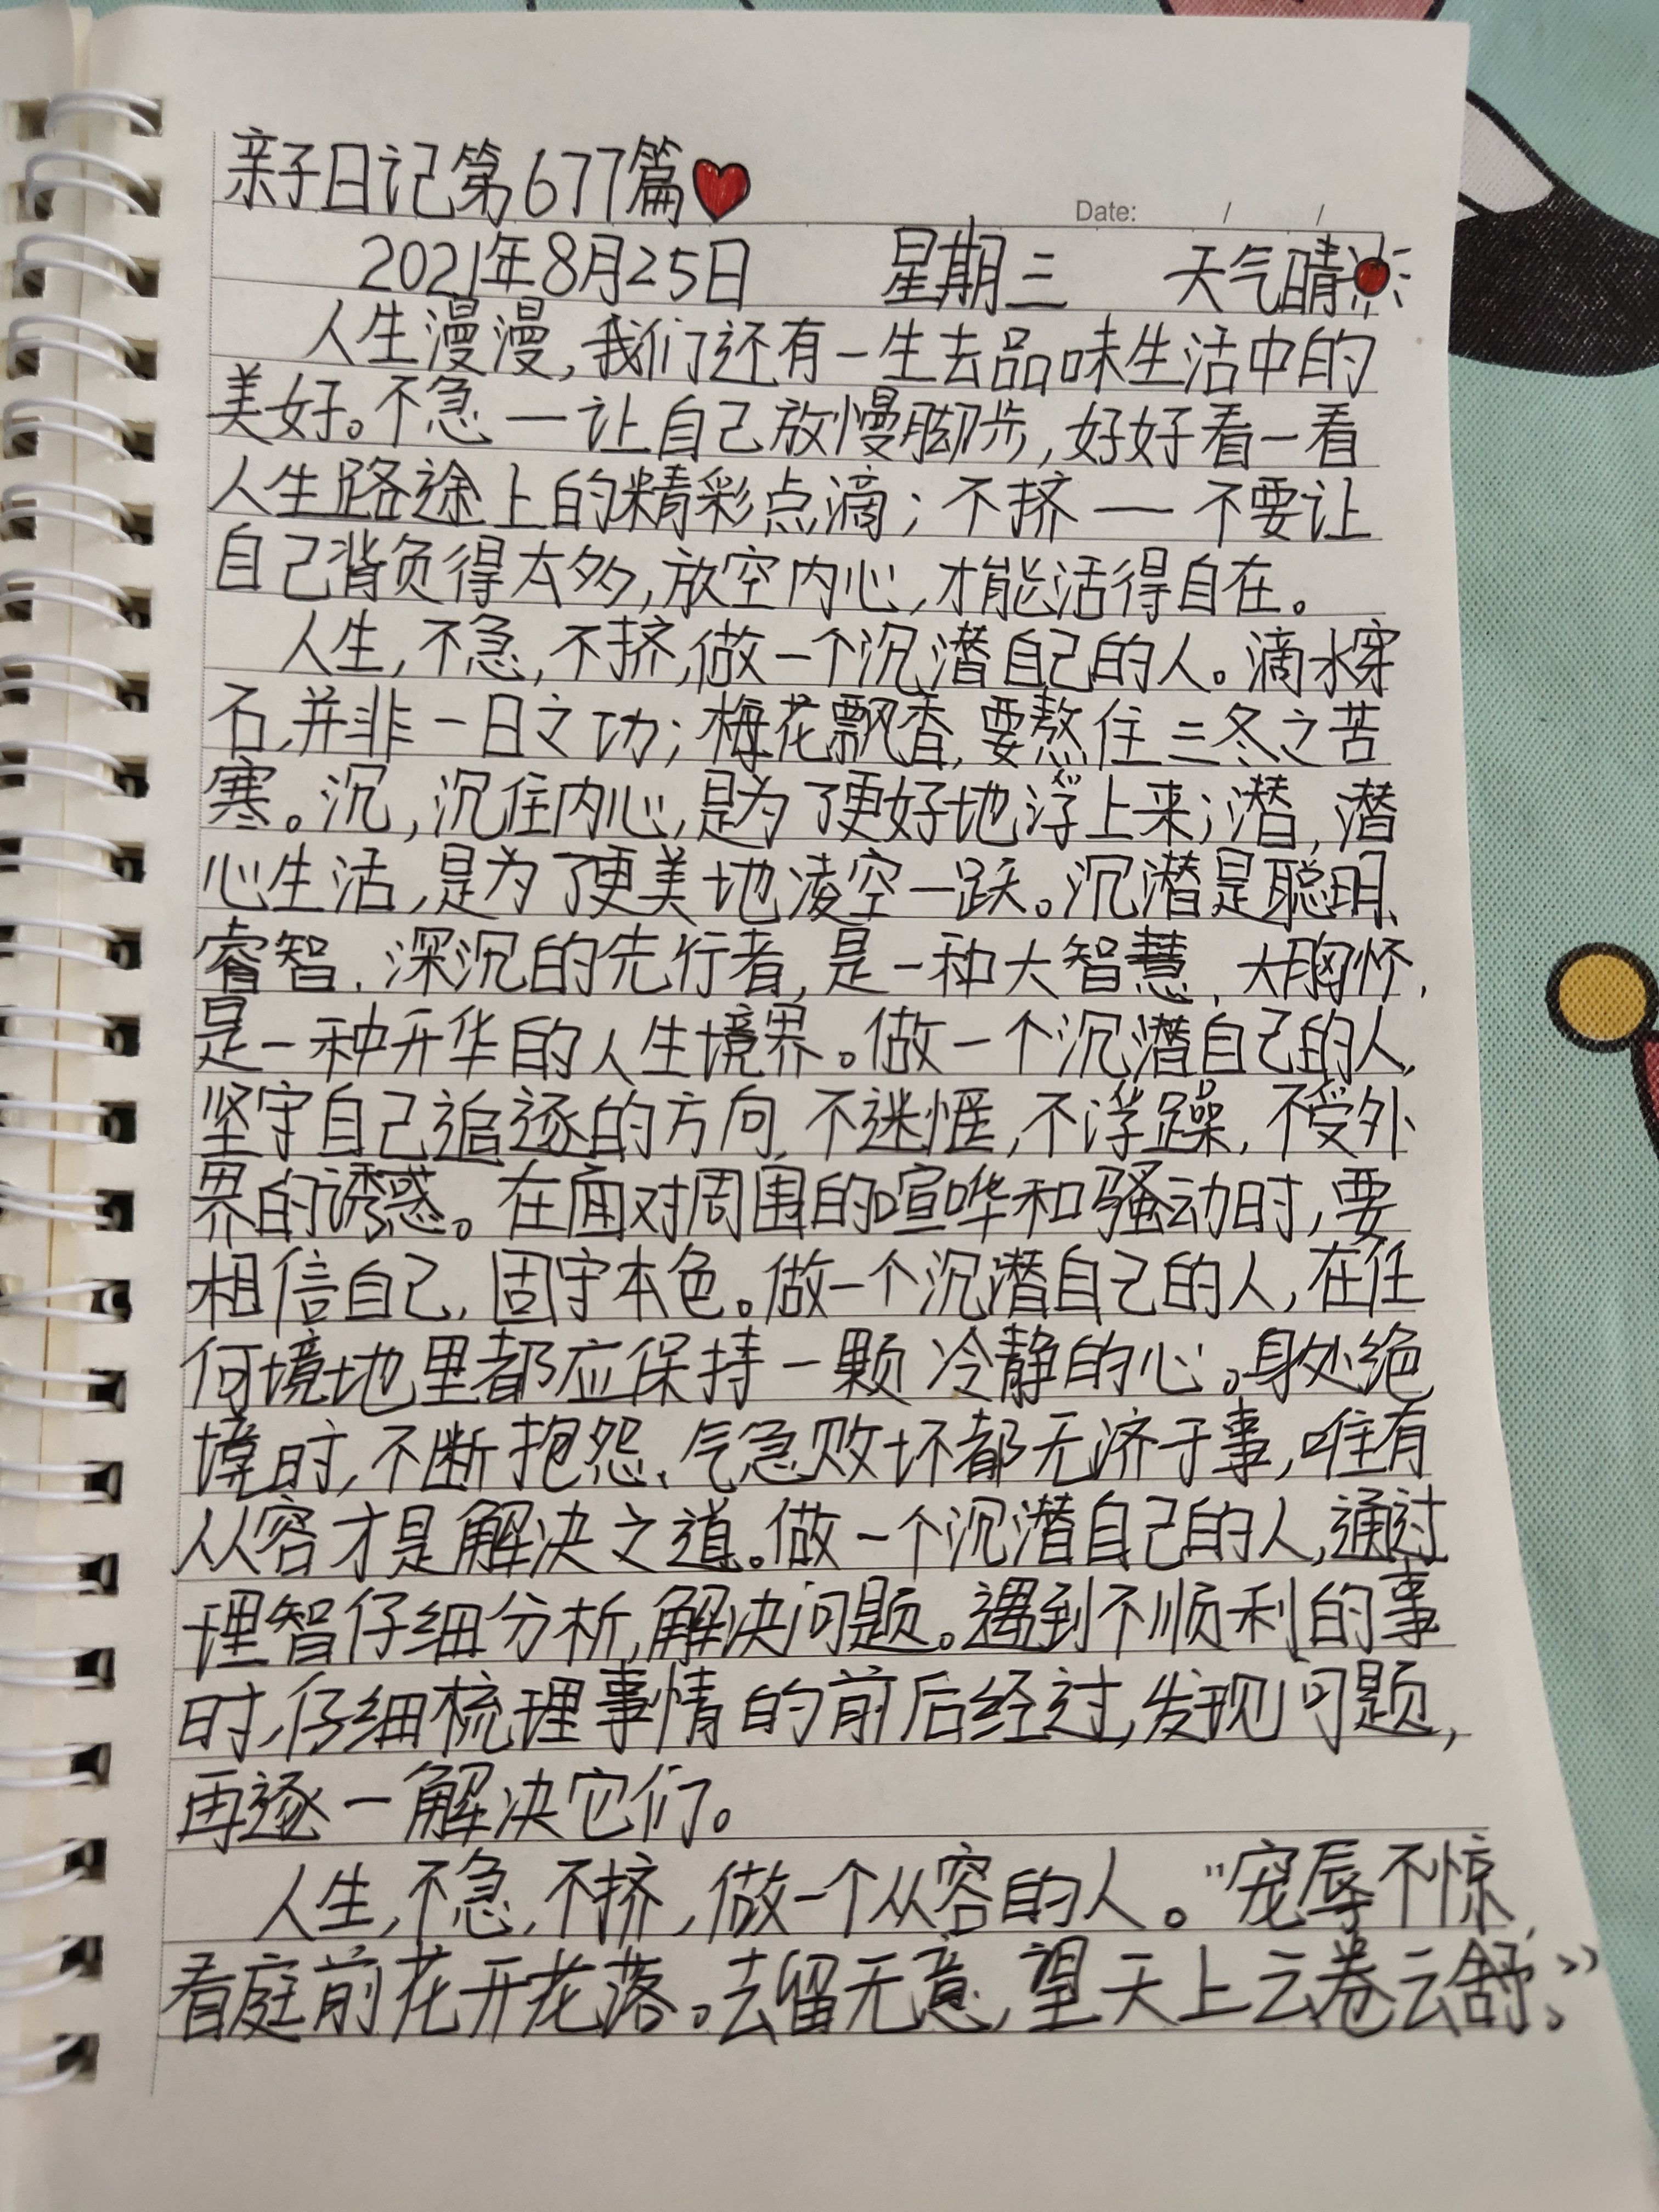 亲子日记第677篇
Date: / /
2021年8月25日 星期三 天气晴
人生漫漫,我们还有一生去品味生活中的
美好。不急一让自己放慢脚步,好好看一看
人生路途上的精彩点滴;不挤一不要让
自己背负得太多,放空内心,才能活得自在。
人生,不急,不挤,做一个沉潜自己的人。滴水穿
石,并非一日之功;梅花飘香,要熬住三冬之苦
寒。沉,沉住内心,是为了更好地浮上来;潜,潜
心生活,是为了更美地凌空一跃。沉潜是聪明、
睿智、深沉的先行者,是一种大智慧、大胸怀,
是一种升华的人生境界。做一个沉潜自己的人,
坚守自己追逐的方向,不迷惘,不浮躁,不受外
界的诱惑。在面对周围的喧哗和骚动时,要
相信自己,固守本色。做一个沉潜自己的人,在任
何境地里都应保持一颗冷静的心。身处绝
境时,不断抱怨、气急败坏都无济于事,唯有
从容才是解决之道。做一个沉潜自己的人,通过
理智仔细分析,解决问题。遇到不顺利的事
时,仔细梳理事情的前后经过,发现问题,
再逐一解决它们。
人生,不急,不挤,做一个从容的人。“宠辱不惊,
看庭前花开花落。去留无意,望天上云卷云舒。”